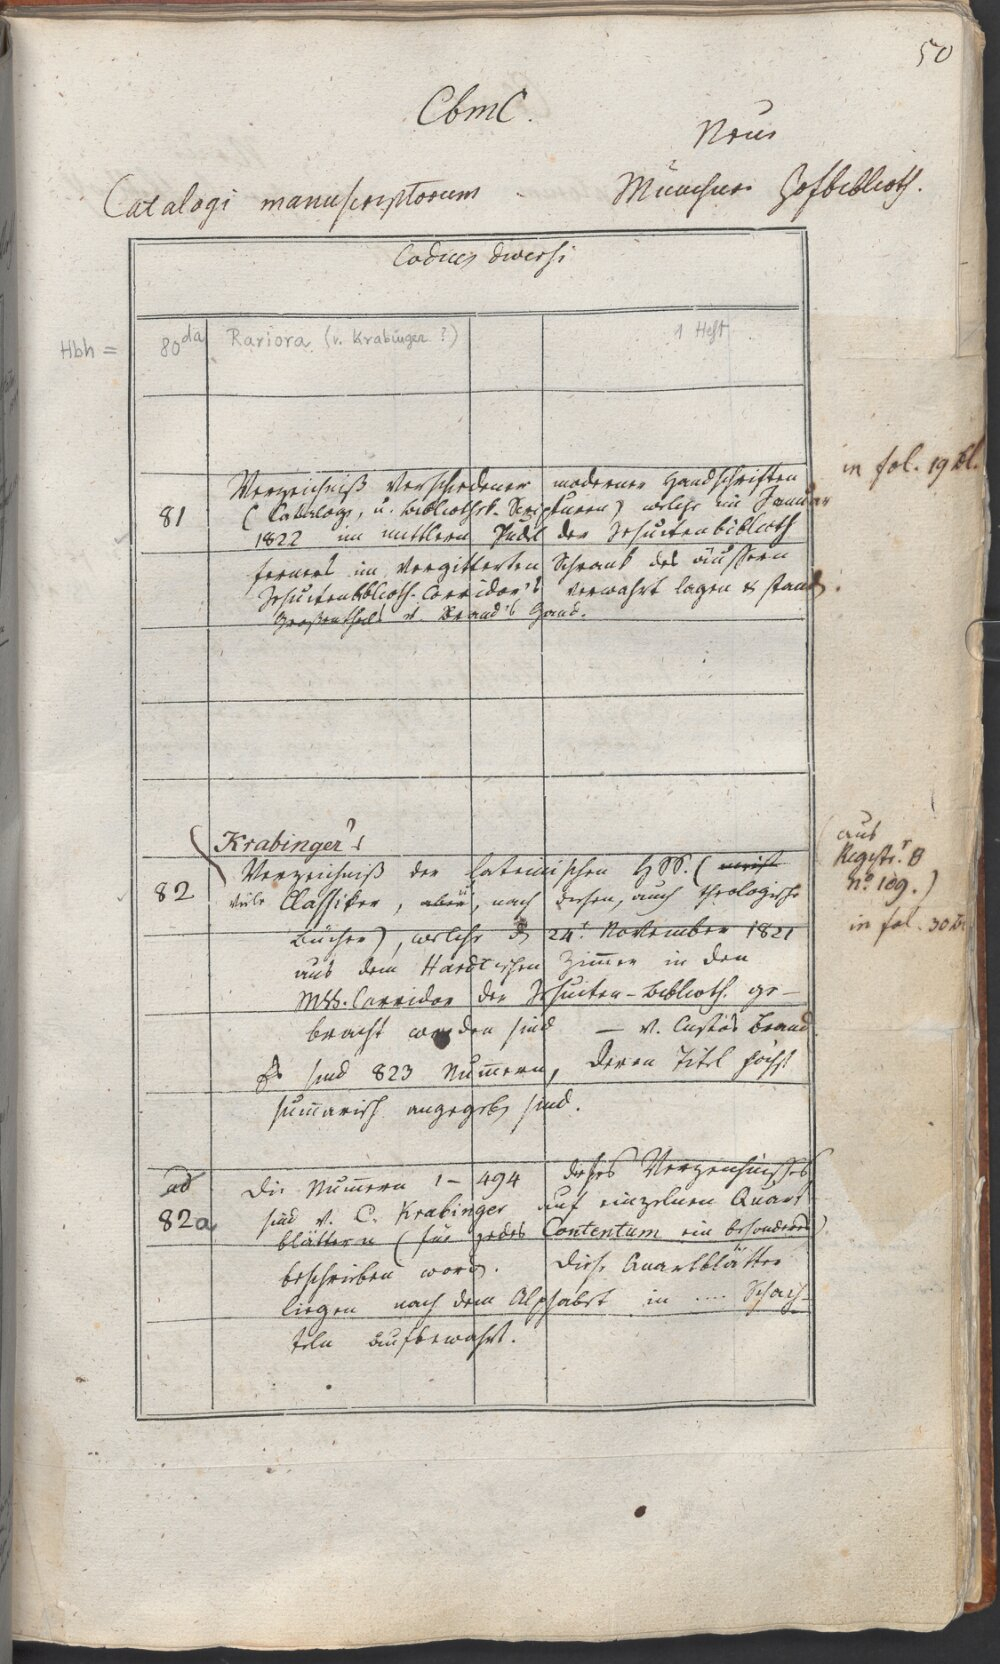 50
CbmC.
Neue
Catalogi manuscriptorum Münchner Hofbiblioth.
Codices diversi
Hbh = 80da Rariora (v. Krabinger?) 1 Heft
in fol. 19 Bl.
81 Verzeichniß verschiedener moderner Handschriften
(Cataloge, u. bibliothek. Scripturen) welche im Januar
1822 im mittlern Pudel der Jesuitenbiblioth
ferners im vergitterten Schrank des äussern
Jesuitenbiblioth. Corridor's verwahrt lagen & standen.
Großentheils v. Brand's Hand.
Krabinger's
82 Verzeichniß der lateinischen HSS. (meist
viele Classiker, aber, nach diesen, auch theologische
Bücher), welche d 24t November 1821
aus dem Hardtischen Zimmer in den
MSS. Corridor der Jesuiten-Biblioth. ge-
bracht worden sind – v. Custos Brand.
Es sind 823 Nummern, deren Titel höchst
summarisch angegeben sind.
aus
Registr.r B
no. 109.)
in fol. 30 Bl.
ad
82a Die Nummern 1-494 dieses Verzeichnisses
sind v. C. Krabinger auf einzelnen Quart
blättern (für jedes Contentum ein besonderes)
beschrieben word. Diese Quartblätter
liegen nach dem Alphabet in .... Schach-
teln aufbewahrt.